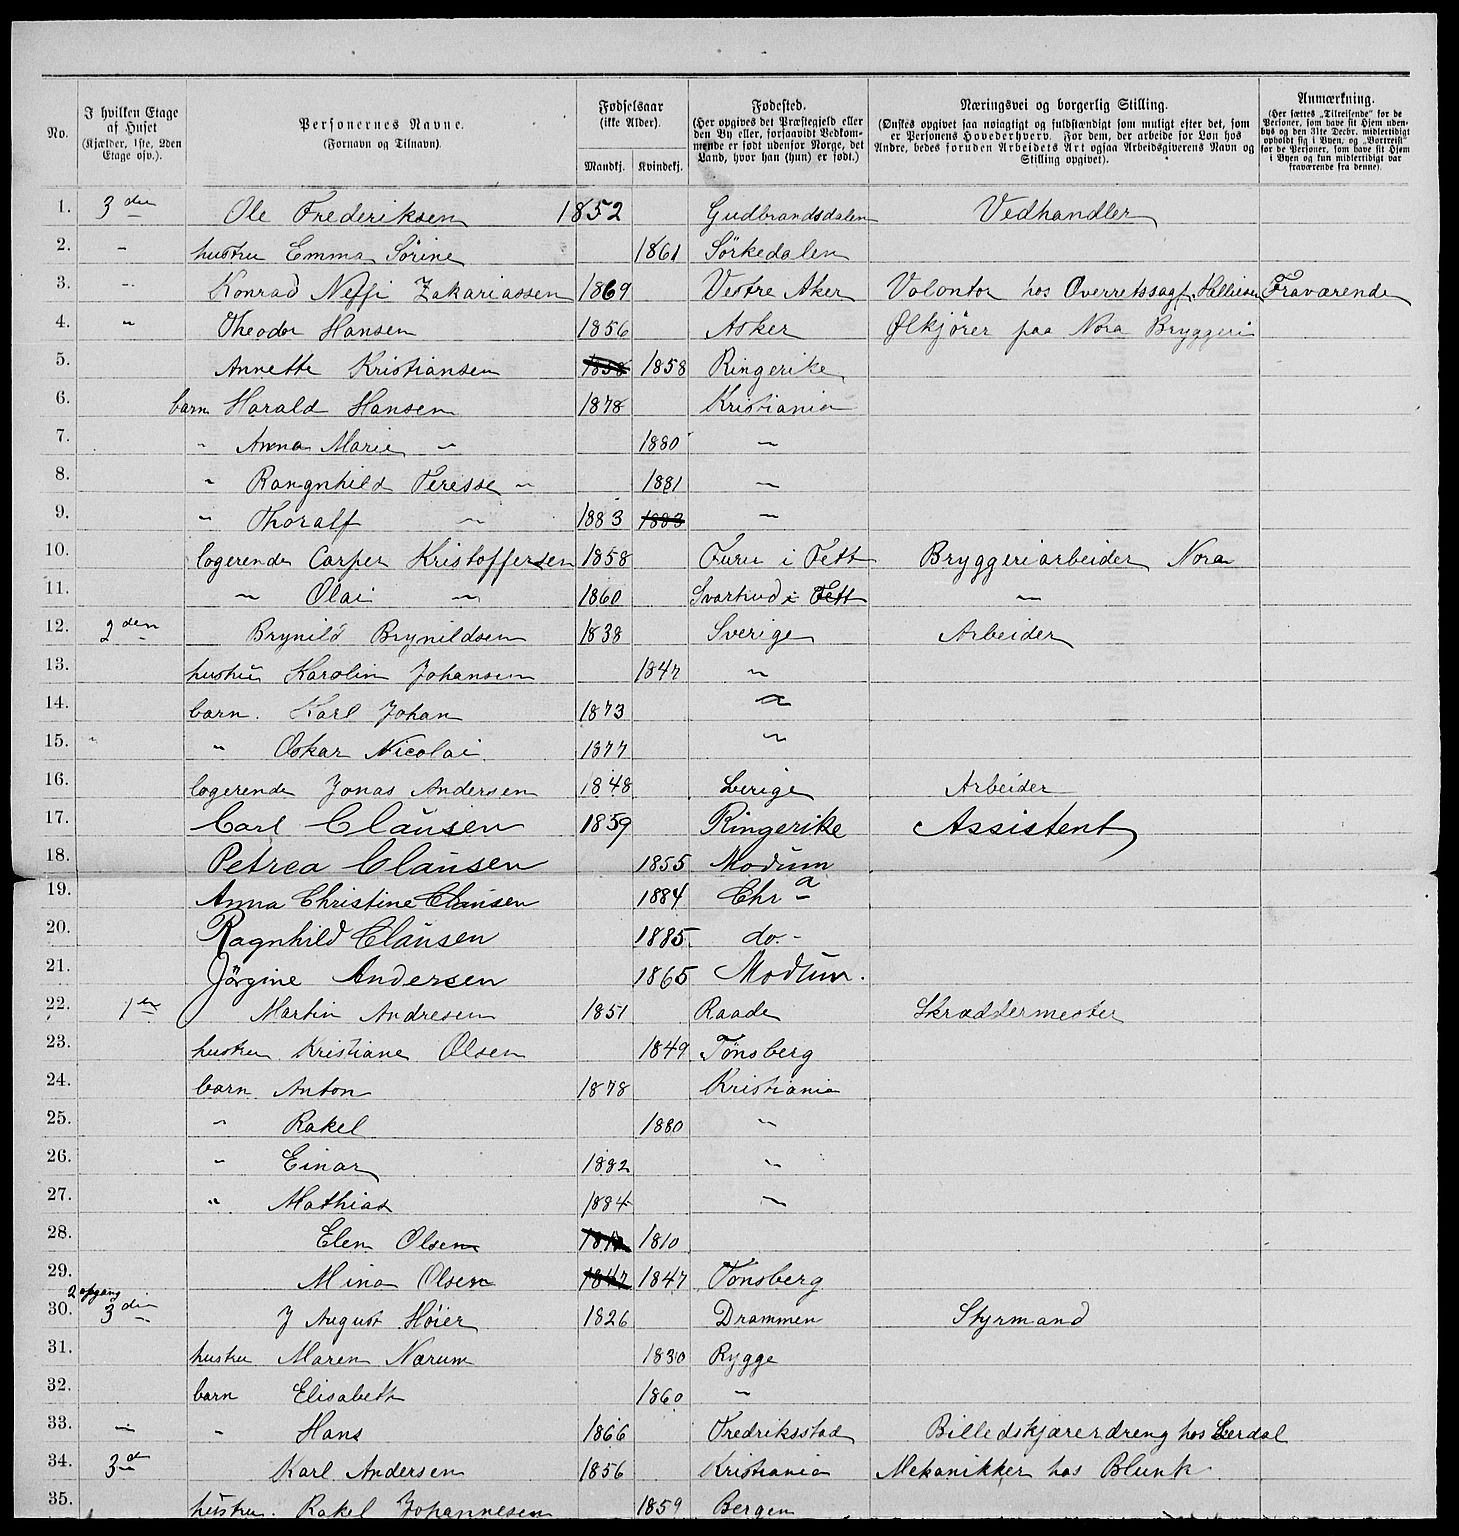 No. | I hvilken Etage af Huset (Kjælder, 1ste, 2den Etage osv.). | Personernes Navne. (Fornavn og Tilnavn). | Fødselsaar (ikke Alder). Mandkj. | Kvindekj. | Fødested. (Her opgives det Præstegjeld eller den By eller, forsaavidt Vedkommende er født udenfor Norge, det Land, hvor han (hun) er født.) | Næringsvei og borgerlig Stilling. (Ønskes opgivet saa nøiagtigt og fuldstændigt som muligt efter det, som er Personens Hovederhverv. For dem, der arbeide for Løn hos Andre, bedes foruden Arbeidets Art ogsaa Arbeidsgiverens Navn og Stilling opgivet). | Anmærkning. (Her sættes „Tilreisende“ for de Personer, som have sit Hjem udenbys og den 31te Decbr. midlertidigt opholdt sig i Byen, og „Bortreist“ for de Personer, som have sit Hjem i Byen og kun midlertidigt var fraværende fra denne).
1. 3den Ole Frederiksen 1852 Gudbrandsdalen Vedhandler
2. " hustru Emma Sørine 1861 Sørkedalen
3. " Konrad Zakariassen 1869 Vestre Aker Volontør hos Overretssagf. Fraværende
4. " Theodor Hansen 1856 Asker Ølkjører paa Nora Bryggeri
5. Annette Kristiansen 1858 1858 Ringerike
6. barn Harald Hansen 1878 Kristiania
7. " Anna Marie " 1880 "
8. " Rangnhild Teresse " 1881 "
9. " Thoralf " 1883 1883 "
10. logerende Casper Kristoffersen 1858 Furu i Tett Bryggeriarbeider Nora
11. " Olai " 1860 i Tett "
12. 2den Brynild Brynildsen 1838 Sverige Arbeider
13. hustru Karolin Johansen 1847 "
14. barn. Karl Johan 1873 "
15. " " Oskar Nicolai 1877 "
16. logerende Jonas Andersen 1848 Sverige Arbeider
17. Carl Claüsen 1859 Ringerike Assistent
18. Petrea Claüsen 1855 Modüm
19. Anna Christine Claüsen 1884 Chra
20. Ragnhild Claüsen 1885 do.
21. Jörgine Andersen 1865 Modüm.
22. 1ste Martin Andresen 1851 Raade Skræddermester
23. hustru Kristiane Olsen 1849 Tønsberg
24. barn Anton 1878 Kristiania
25. " Rakel 1880 "
26. " Einar 1882 "
27. " Mathias 1884 "
28. Elen Olsen 1810
29. Mina Olsen 1847 1847 Tønsberg
2 opgang
30. 3die J August Höier 1826 Drammen Styrmand
31. hustru Maren Narum 1830 Rygge
32. barn Elisabeth 1860 "
33. " " Hans 1866 Fredriksstad Billedskjærerdreng hos Lerdal
34. 3d Karl Andersen 1856 Kristiania Mekanikker hos Blunk
35. hüstru. Rakel Johannesen 1859 Bergen